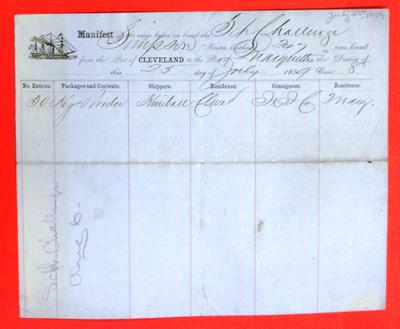 July 25, 1859
Manifest of the cargo laden on board the Sch Challenge
Simpson Master, burthen tons, bound
from the Port of CLEVELAND to the Port of Marquette in the District of
this 25 day of July 1859
No. Entries. Packages and Contents. Shippers. Residence. Consignees. Residence.
50 Keg Powder Kimball Cleve Marq.
Sch Challenge
Aug 6